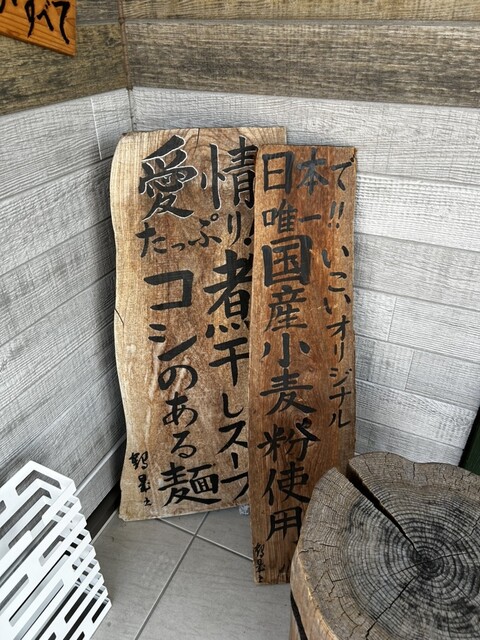 すべて
愛情
たっぷり!
煮干しスープ
コシのある麺
日本で!!
唯一
いこいオリジナル
国産小麦粉使用